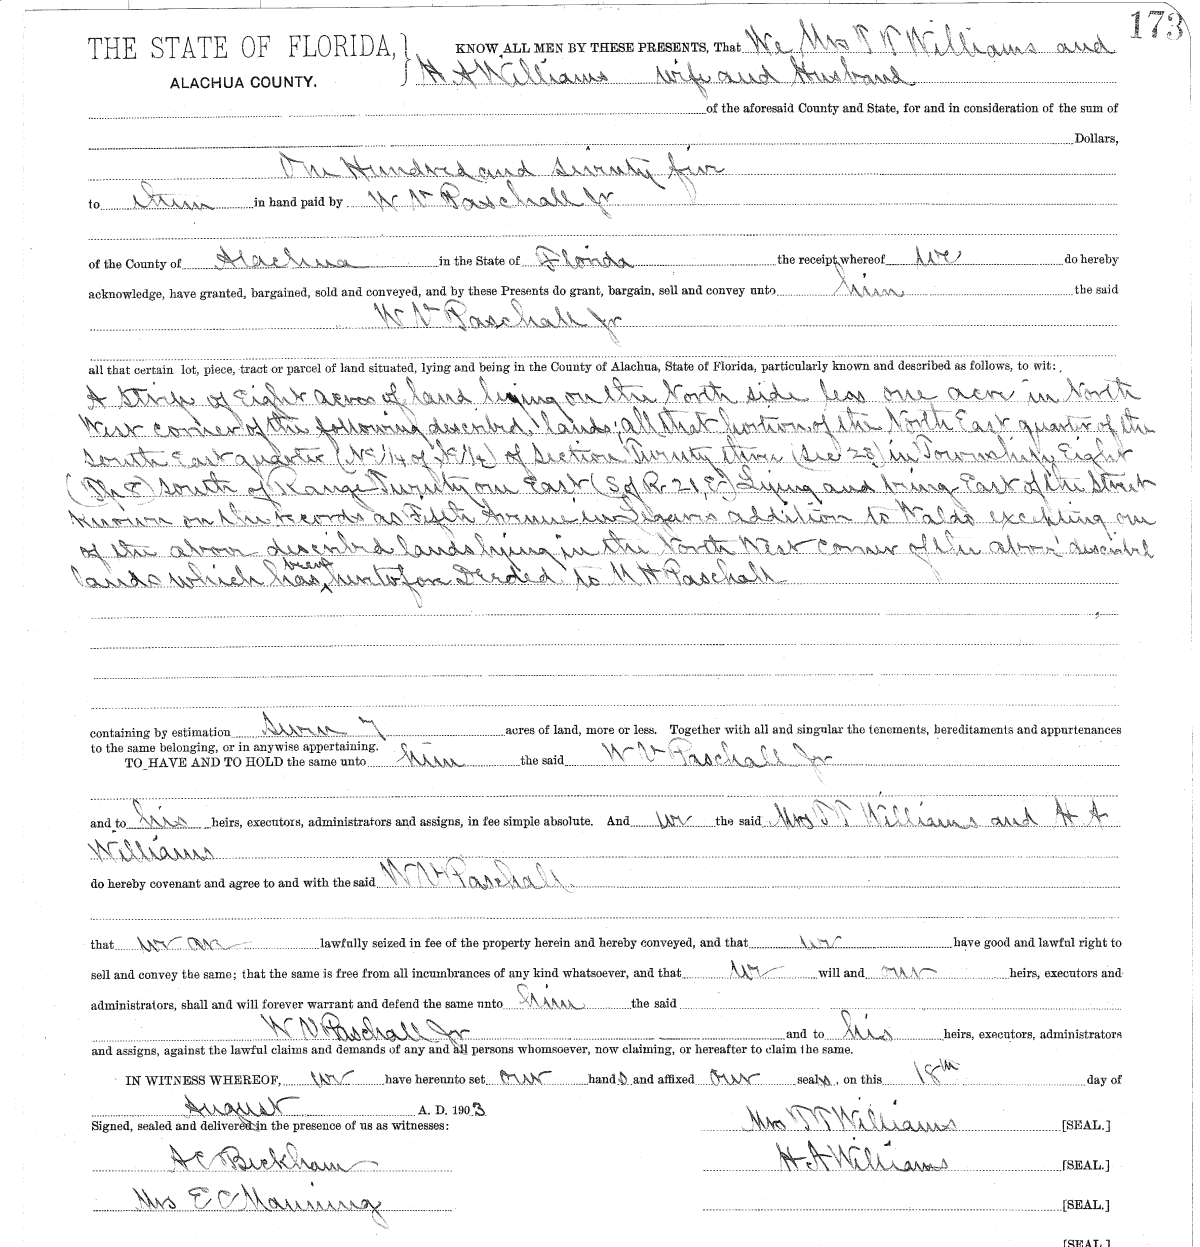 173
THE STATE OF FLORIDA,
ALACHUA COUNTY.
KNOW ALL MEN BY THESE PRESENTS, That We Mrs T T Williams and
H A Williams wife and Husband
of the aforesaid County and State, for and in consideration of the sum of
Dollars,
One Hundred and Seventy five
to them in hand paid by W N Paschall Jr
of the County of Alachua in the State of Florida the receipt whereof we do hereby
acknowledge, have granted, bargained, sold and conveyed, and by these Presents do grant, bargain, sell and convey unto him the said
W N Paschall Jr
all that certain lot, piece, tract or parcel of land situated, lying and being in the County of Alachua, State of Florida, particularly known and described as follows, to wit:
A Strip of Eight acres of land lying on the North side less one acre in North
West corner of the following described lands; all that portion of the North East quarter of the
South East quarter (NE 1/4 of SE 1/4) of Section Twenty three (Sec 23) in Township Eight
(Tp 8) South of Range Twenty one East (S of R 21, E) Lying and being East of the Street
known on the records as Fifth Avenue in addition to Waldo excepting one
of the above described lands lying in the North West corner of the above described
lands which has been heretofore Deeded to Paschall
containing by estimation Seven 7 acres of land, more or less. Together with all and singular the tenements, hereditaments and appurtenances
to the same belonging, or in anywise appertaining.
TO HAVE AND TO HOLD the same unto him the said W N Paschall Jr
and to his heirs, executors, administrators and assigns, in fee simple absolute. And we the said Mrs T T Williams and H A
Williams
do hereby covenant and agree to and with the said W N Paschall
that we are lawfully seized in fee of the property herein and hereby conveyed, and that we have good and lawful right to
sell and convey the same; that the same is free from all incumbrances of any kind whatsoever, and that we will and our heirs, executors and
administrators, shall and will forever warrant and defend the same unto him the said
W N Paschall Jr and to his heirs, executors, administrators
and assigns, against the lawful claims and demands of any and all persons whomsoever, now claiming, or hereafter to claim the same.
IN WITNESS WHEREOF, we have hereunto set our hands and affixed our seals, on this 18th day of
August A. D. 1903
Signed, sealed and delivered in the presence of us as witnesses:
Mrs T T Williams [SEAL.]
A C Bickham
H A Williams [SEAL.]
Mrs E C Manning
[SEAL.]
[SEAL.]